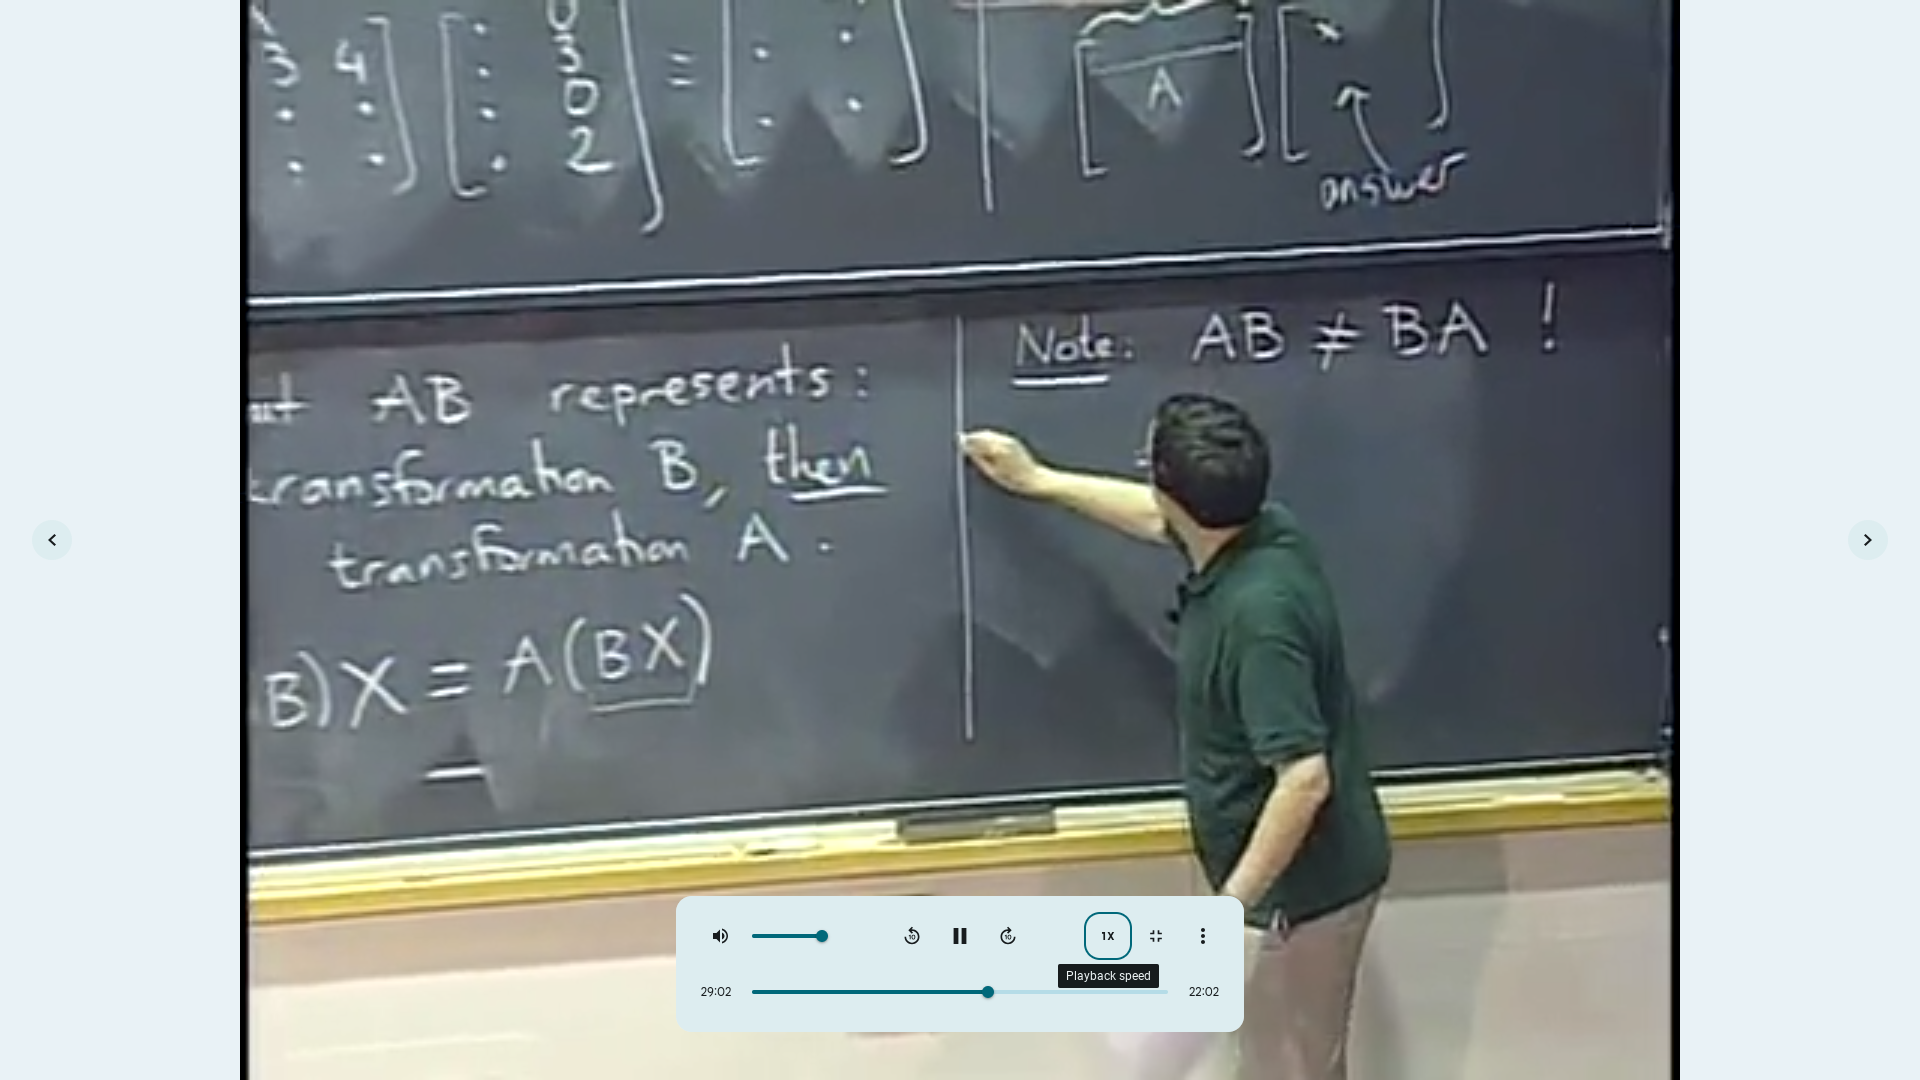 0
3 4 3
0
2
=
A
answer
Note: AB ≠ BA !
AB represents:
transformation B, then
transformation A.
B)X = A(BX)
1X
Playback speed
29:02
22:02